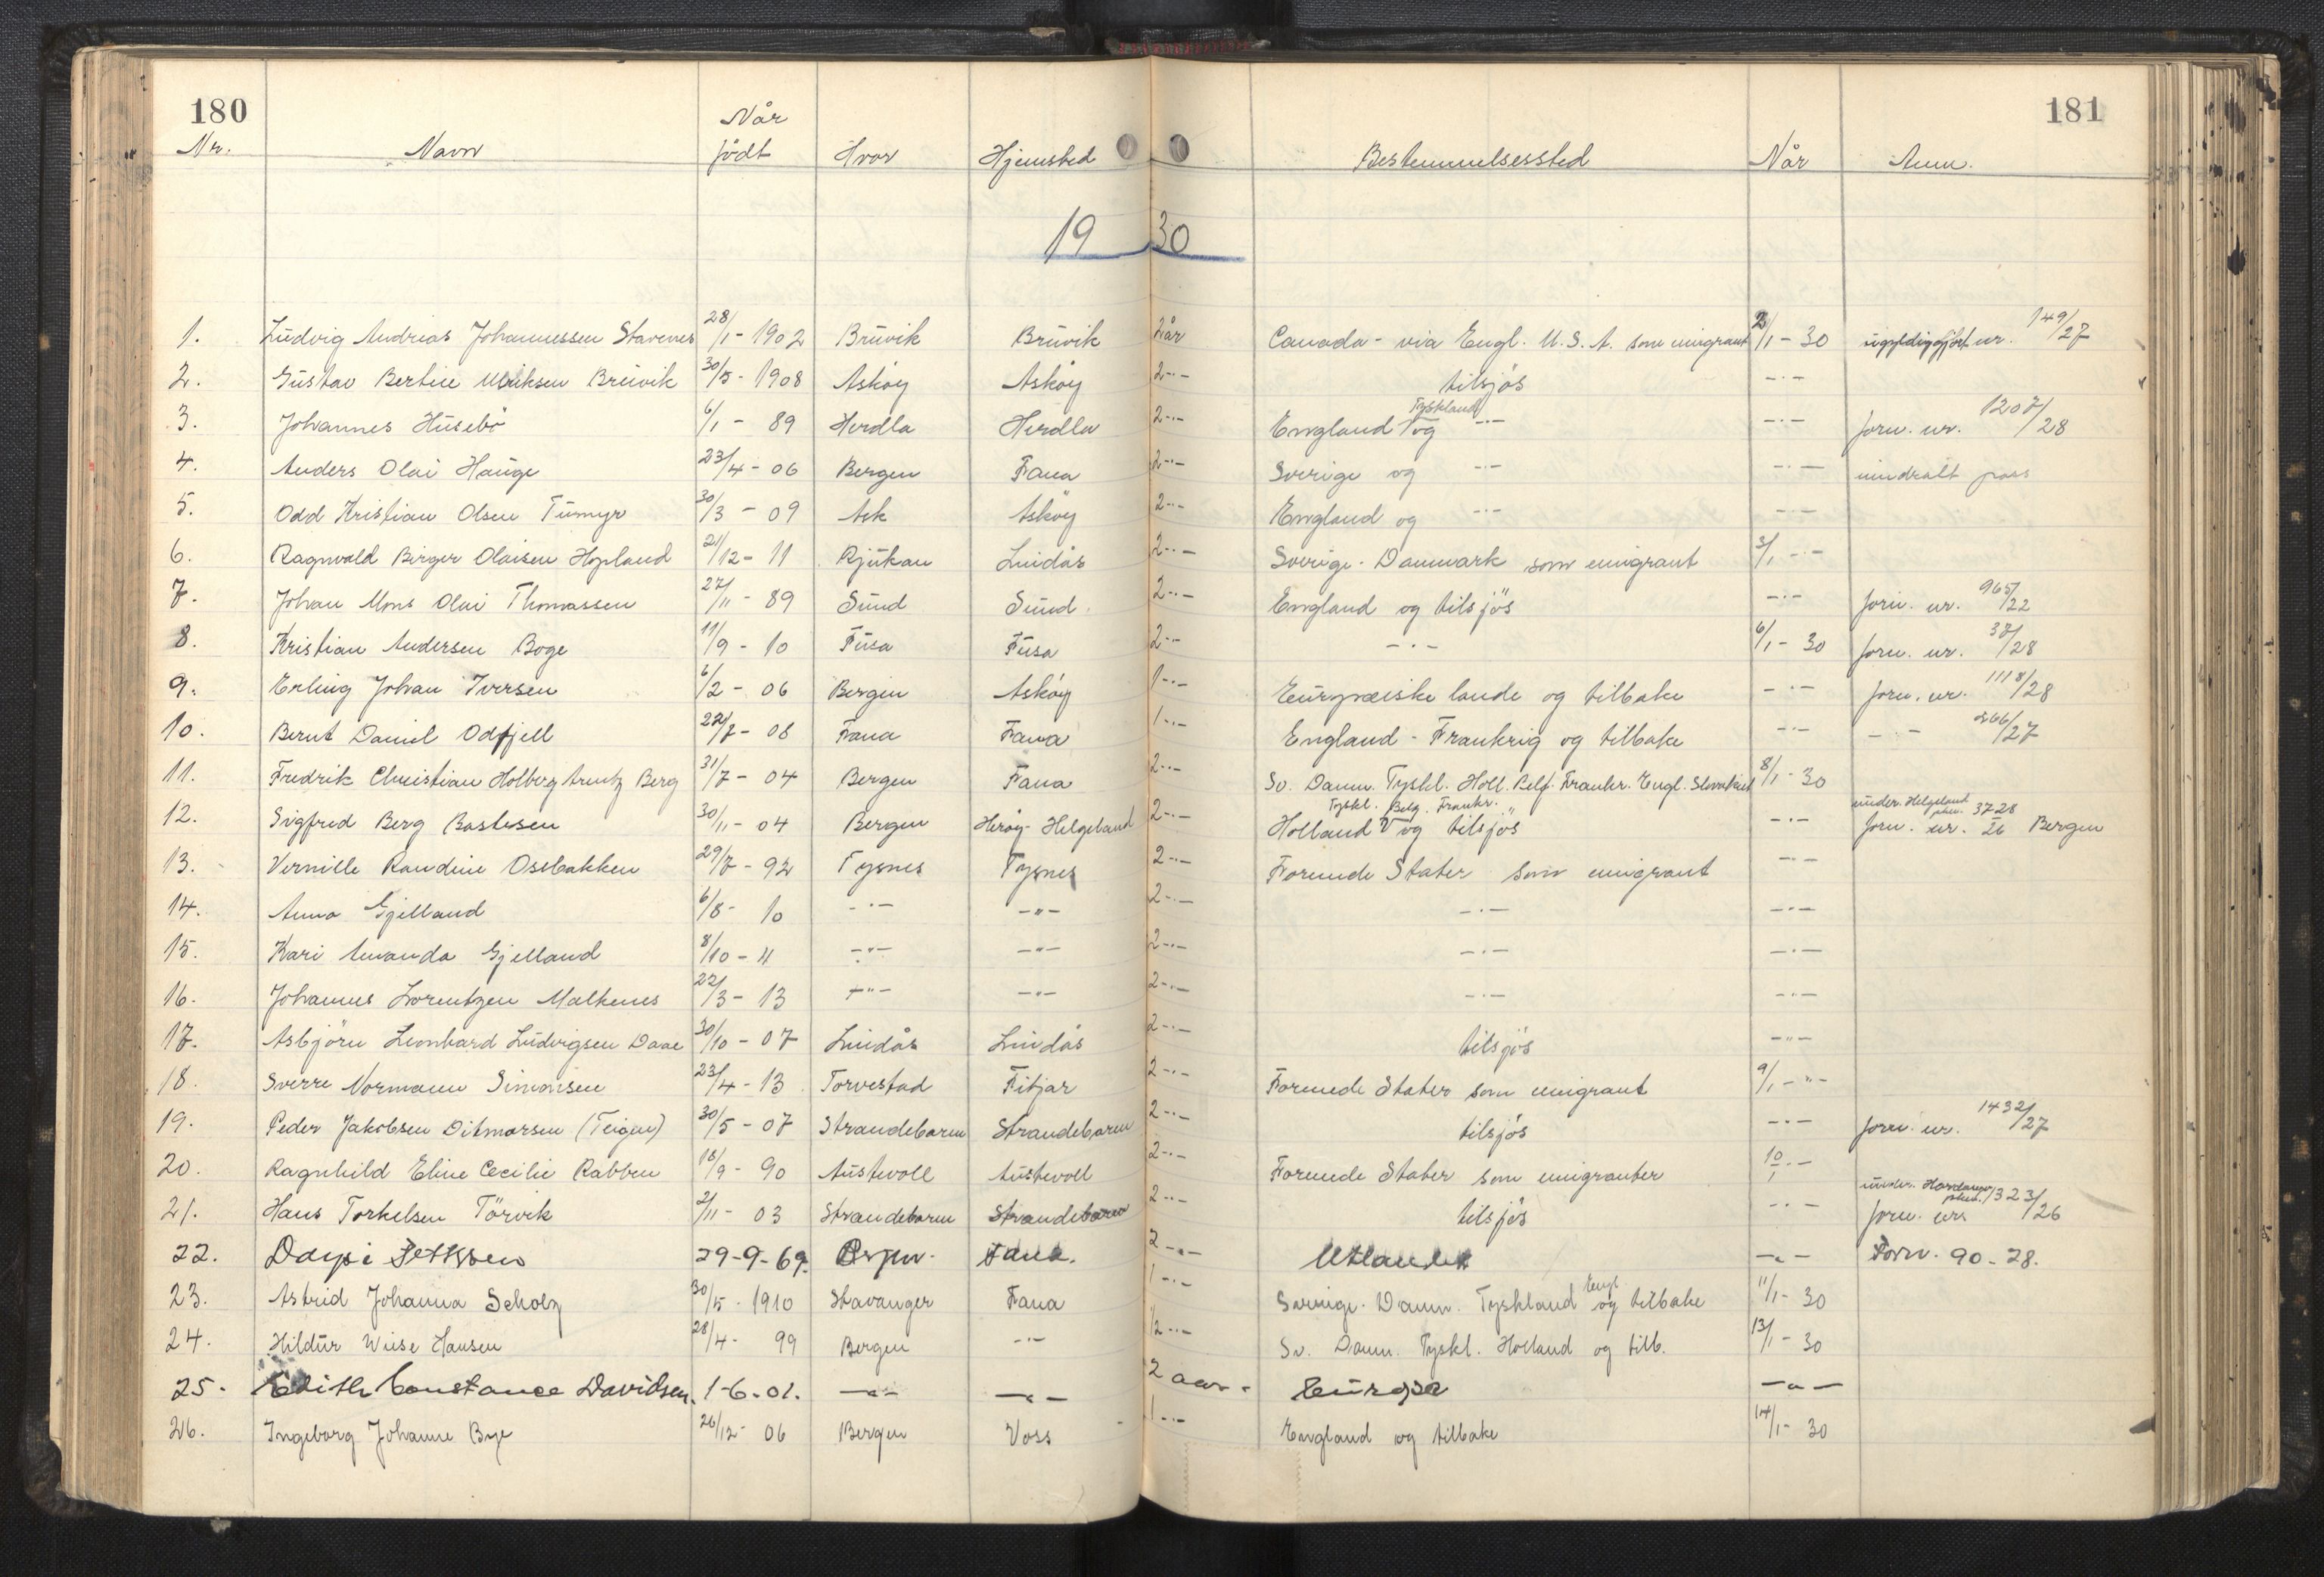 180 181
Når
Nr. Navn födt Hvor Hjemsted Bestemmelsessted Når Anm.
19 30
1. Ludvig Andreas Johannessen Stavenes 28/1 - 1902 Bruvik Bruvik 2 år Canada - via Engl. U.S.A. som emigrant 2/1 - 30 ugyldiggjort nr. 149/27
2. Gustav Bertin Breivik 30/5 - 1908 Asköy Asköy 2 -"- tilsjös -"-
3. Johannes Husebö 6/1 - 89 Herdla Herdla 2 -"- England Tyskland og -"- -"- forn. nr. 1207/28
4. Anders Olai Hauge 23/4 - 06 Bergen Fana 2 -"- Sverige og -"- -"- inndralt pass
5. Odd Kristian Olsen 30/3 - 09 Ask Asköy 2 -"- England og -"- -"-
6. Ragnvald Birger Olaisen Hopland 21/12 - 11 Rjukan Lindås 2 -"- Sverige - Danmark som emigrant 3/1 -"-
7. Johan Mons Olai Thomassen 27/11 - 89 Sund Sund 2 -"- England og tilsjös -"- forn. nr. 965/22
8. Kristian Andersen Boge 11/9 - 10 Fusa Fusa 2 -"- -"- 6/1 - 30 forn. nr. 37/28
9. Erling Johan Iversen 6/2 - 06 Bergen Asköy 1 -"- Europæiske lande og tilbake -"- forn. nr. 1118/28
10. Bernt Daniel Odfjell 22/7 - 08 Fana Fana 1 -"- England - Frankrig og tilbake -"- -"- 266/27
11. Fredrik Christian Holberg Arentz Berg 31/7 - 04 Bergen Fana 2 -"- Sv. Danm. Tyskl. Holl. Belg. Frankr. Engl. 8/1 - 30
12. Sigfred Berg Bastesen 30/11 - 04 Bergen Heröy - Helgeland 2 -"- Holland Tyskl. Belg. Frankr. og tilsjös -"- under. Helgeland forn. nr. 3728/26 Bergen
13. Vernille Randine Osebakken 29/7 - 92 Tysnes Tysnes 2 -"- Forenede Stater som emigrant -"-
14. Anna Gjelland 6/8 - 10 -"- -"- 2 -"- -"- -"-
15. Kari Amanda Gjelland 8/10 - 11 -"- -"- 2 -"- -"- -"-
16. Johannes Lorentzen Malkenes 22/3 - 13 -"- -"- 2 -"- -"- -"-
17. Asbjörn Leonhard Ludvigsen Daae 30/10 - 07 Lindås Lindås 2 -"- tilsjös -"-
18. Sverre Normann Simonsen 23/4 - 13 Torvestad Fitjar 2 -"- Forenede Stater som emigrant 9/1 -"-
19. Peder Jakobsen Ditmarsen (Teigen) 30/5 - 07 Strandebarm Strandebarm 2 -"- tilsjös -"- forn. nr. 1432/27
20. Ragnhild Eline Cecilie Rabben 18/9 - 90 Austevoll Austevoll 2 -"- Forenede Stater som emigranter 10/1 -"-
21. Hans Torkelsen Törvik 2/11 - 03 Strandebarm Strandebarm 2 -"- tilsjös -"- under. Hardanger forn. nr. 1323/26
22. 29-9-69. Fana. 2 -"- Utlandet -"- Forn. 90-28.
23. Astrid Johanna Scholz 30/5 - 1910 Stavanger Fana 1 -"- Sverige. Danm. Tyskland Engl. og tilbake 11/1 - 30
24. Hildur Wiese Hansen 28/4 - 99 Bergen -"- 1/2 -"- Sv. Danm. Tyskl. Holland og tilb. 13/1 - 30
25. Edith Constance Davidsen. 1-6-01. -"- -"- 2 aar - Europa -"-
26. Ingeborg Johanne Bye 26/12 - 06 Bergen Voss 1 -"- England og tilbake 14/1 - 30